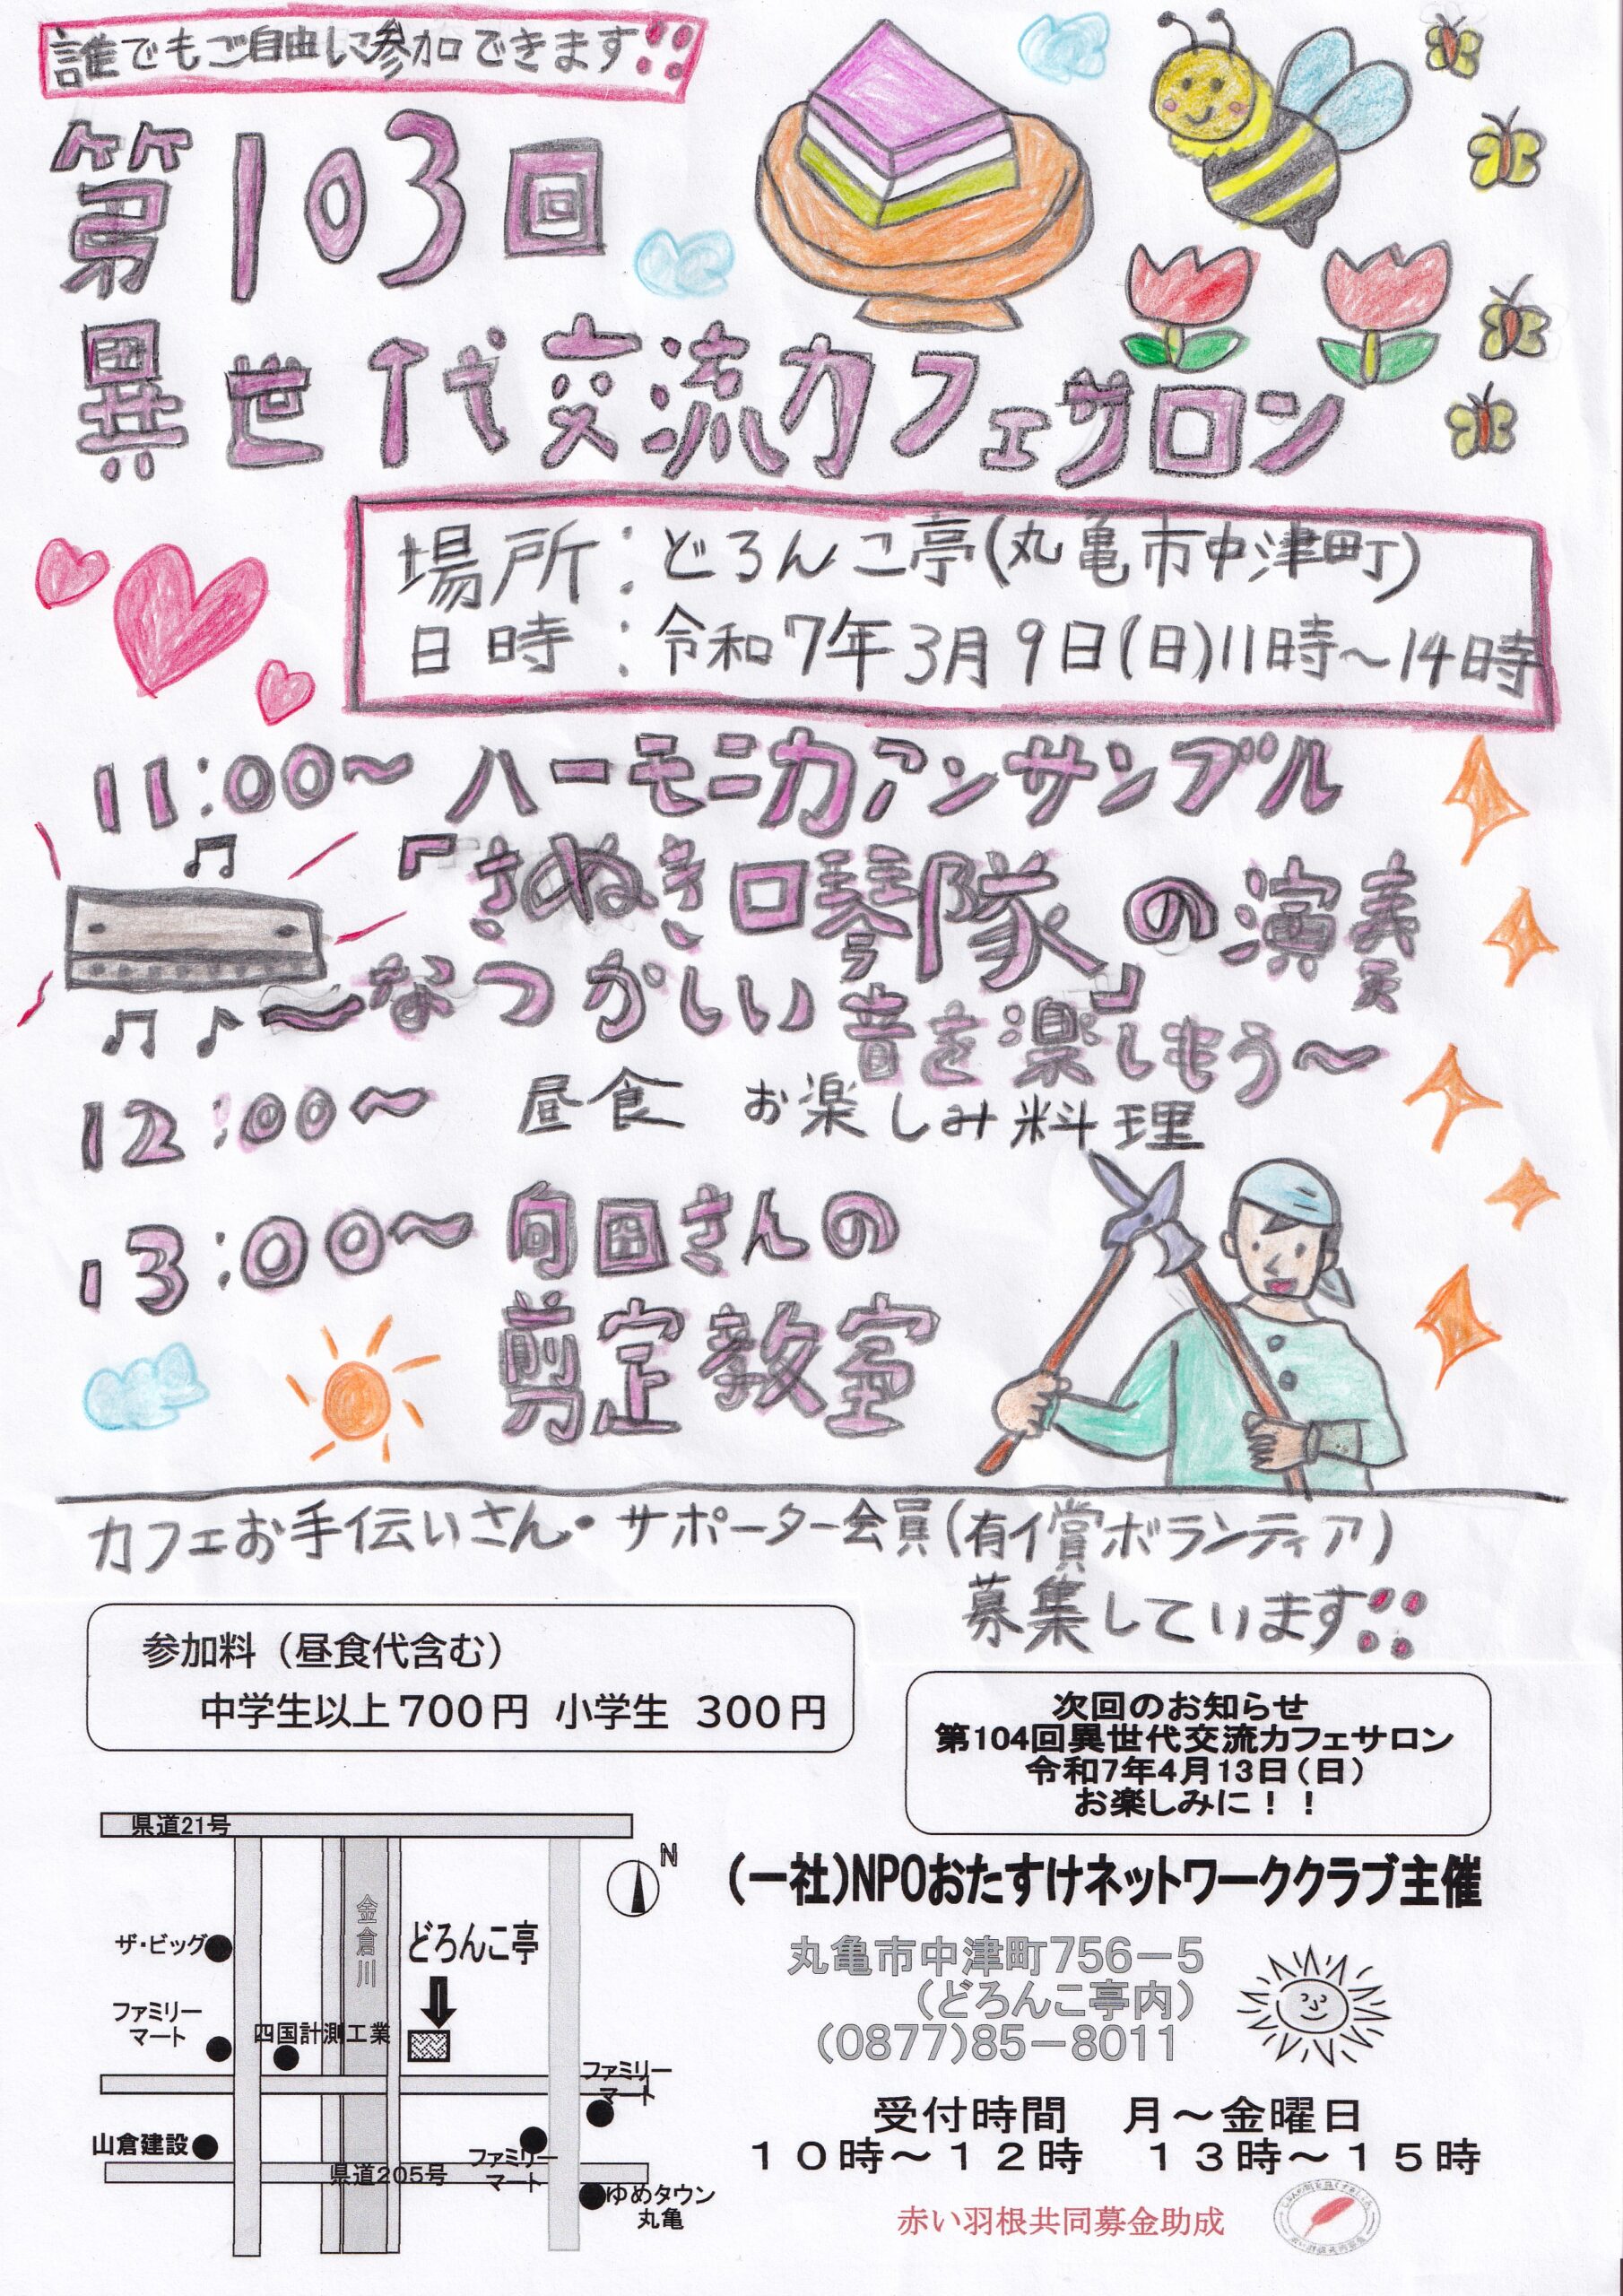 誰でもご自由に参加できます!!
第103回
異世代交流カフェサロン
場所：どろんこ亭(丸亀市中津町)
日時：令和7年3月9日(日)11時～14時
11:00～ハーモニカアンサンブル
『さぬき口琴隊』の演奏
～なつかしい音を楽しもう～
12:00～ 昼食 お楽しみ料理
13:00～向田さんの
剪定教室
カフェお手伝いさん・サポーター会員(有償ボランティア)
募集しています!!
参加料（昼食代含む）
中学生以上700円 小学生 300円
次回のお知らせ
第104回異世代交流カフェサロン
令和7年4月13日（日）
お楽しみに！！
県道21号
N
金倉川
どろんこ亭
ザ・ビッグ
ファミリー
マート
四国計測工業
ファミリー
マート
山倉建設
ファミリー
マート
県道205号
ゆめタウン
丸亀
（一社）NPOおたすけネットワーククラブ主催
丸亀市中津町756－5
（どろんこ亭内）
(0877)85－8011
受付時間 月～金曜日
10時～12時 13時～15時
赤い羽根共同募金助成